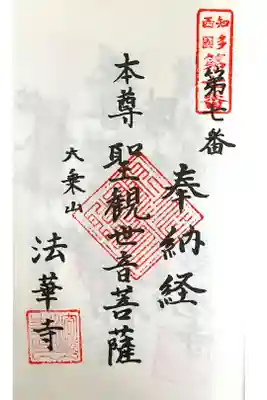 知多
西国
第七番
奉納経
本尊 聖観世音菩薩
大乗山
法華寺